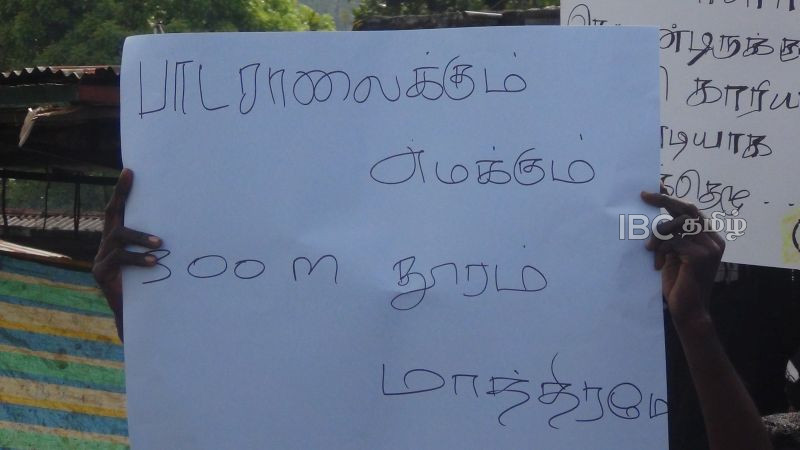 பாடசாலைக்கும்
எமக்கும்
300 m தூரம்
மாத்திரமே
ண்டிருக்கு
காரிய
டியாக
IBC தமிழ்